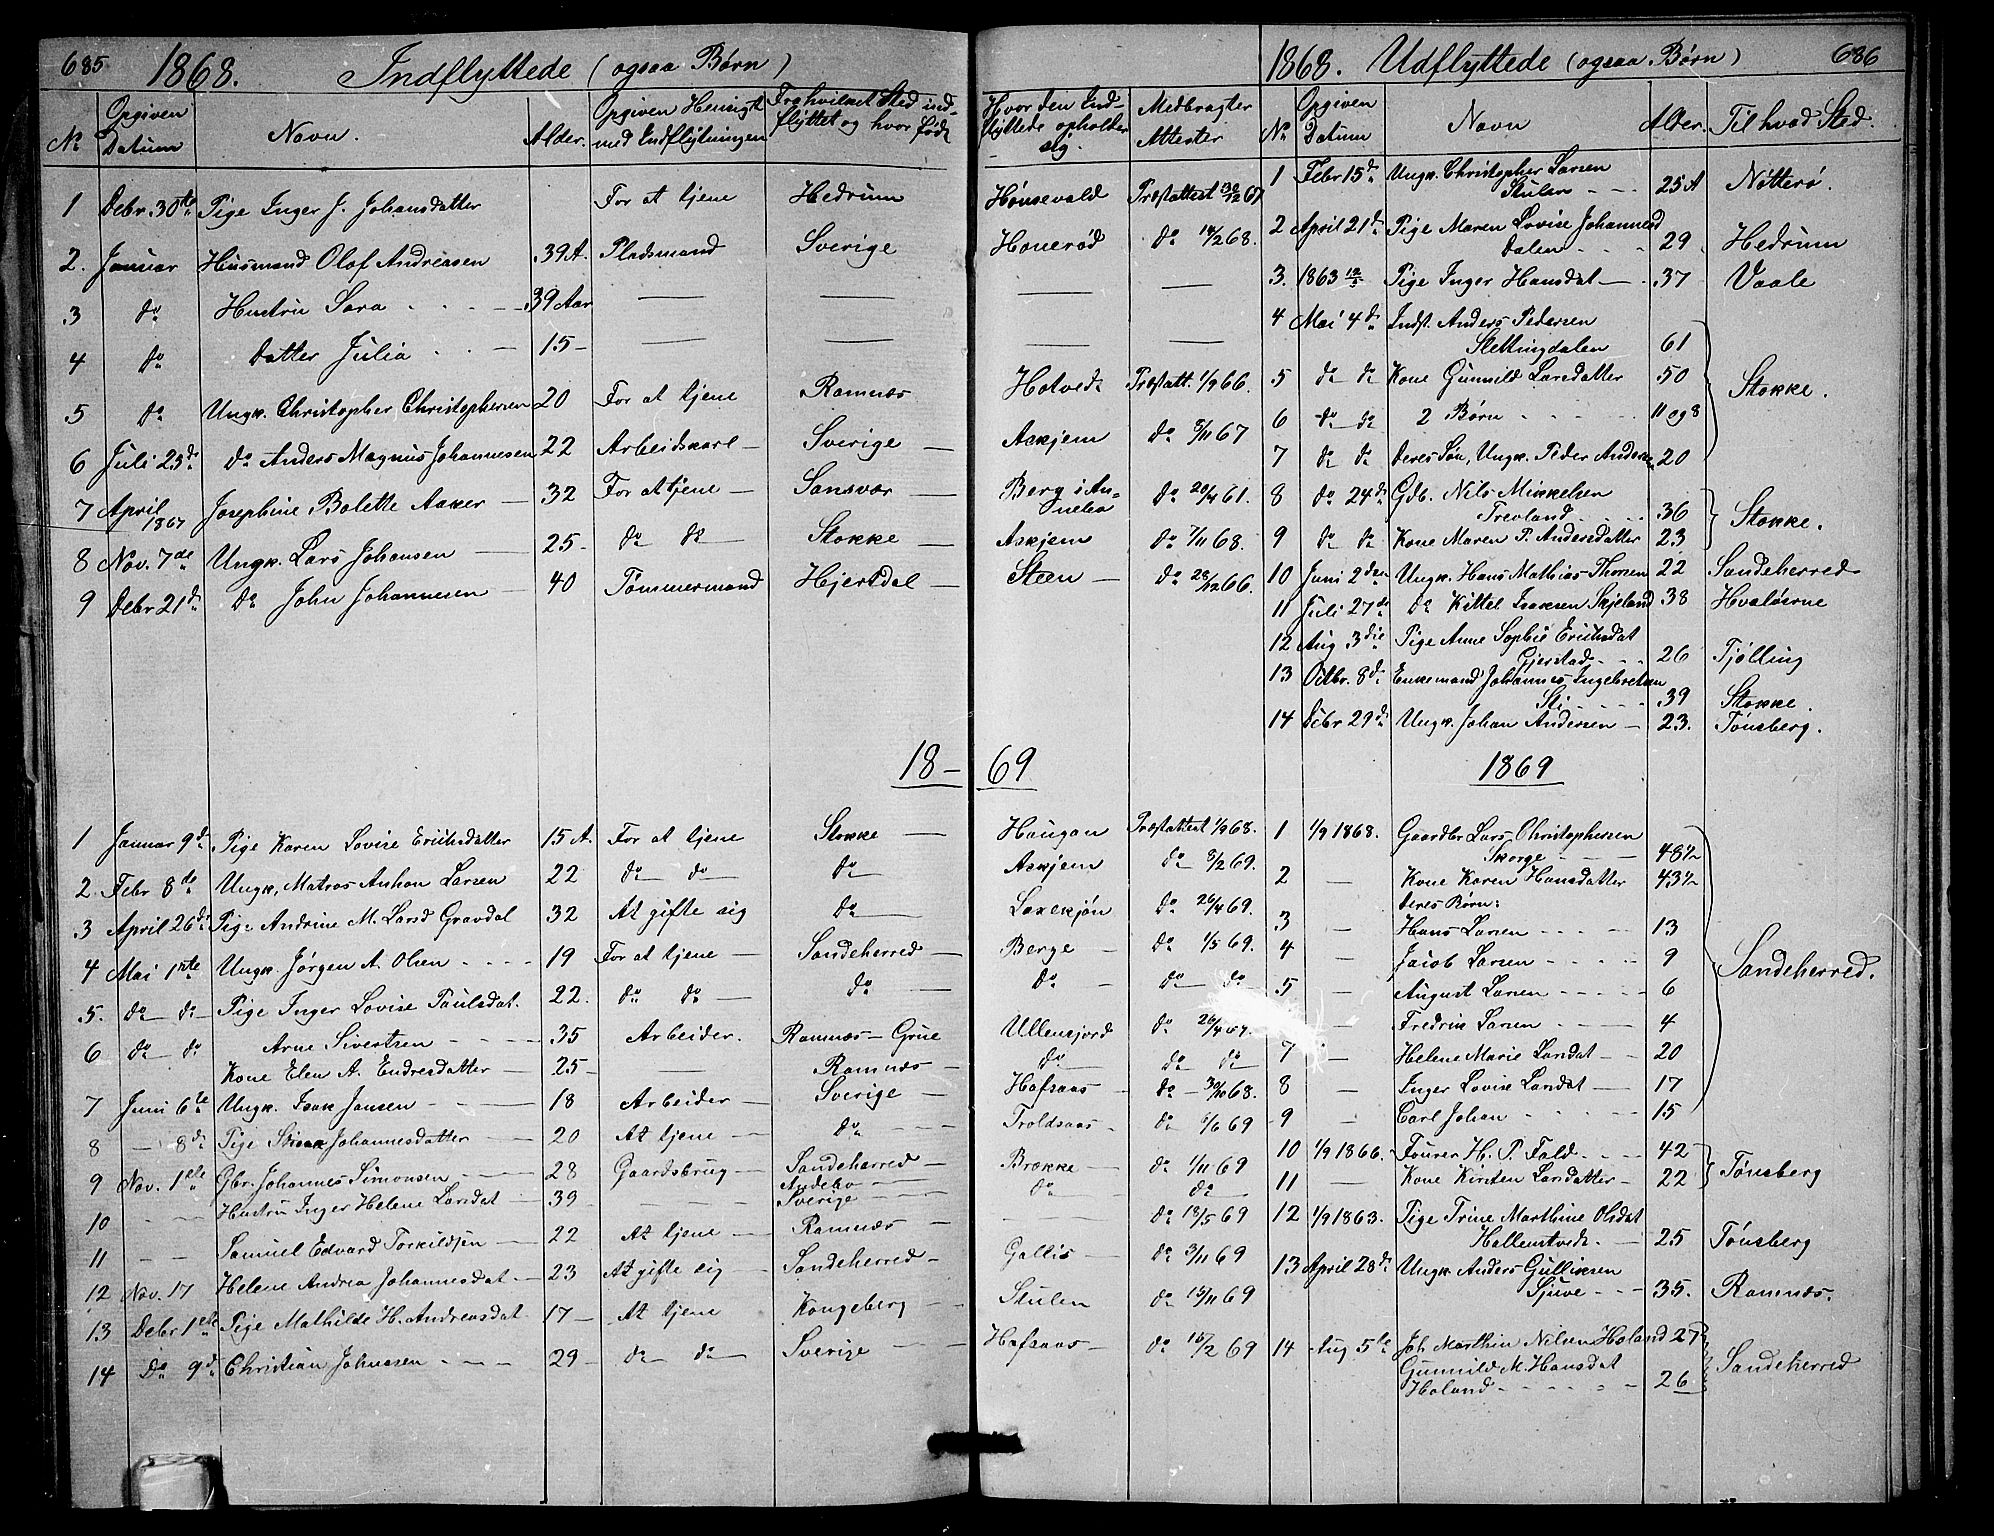 685
1868. Indflyttede (ogsaa Børn)
No
Opgiven Datum
Navn.
Alder.
Opgiven Hensigt med Indflytningen
Fra hvilket Sted indflyttet og hvor født
Hvor den Indflyttede opholder sig.
Medbragte Attester
1 Debr. 30te Pige Inger J. Johansdatter For at tjene Hedrum Hønsevald Præstattest 30/12 67
2. Januar Husmand Olof Andreasen 39 A. Pladsmand Sverige Honerød do 14/2 68.
3 do Hustru Sara 39 Aar — — — —
4 do Datter Julia 15 — — — — —
5 do Ungk. Christopher Christophersen 20 For at tjene Ramnæs Hotvedt Præstatt. 1/9 66.
6 Juli 23de do Anders Magnus Johannesen 22 Arbeidskarl — Sverige — Askjem do 8/11 67
7 April 1867 Josephine Bolette Aaker — 32 For at tjene — Sansvær — Berg i Annebo do 20/4 61.
8 Nov. 7de Ungk. Lars Johansen — 25 do do — Stokke — Askjem do 7/11 68.
9 Debr 21de do John Johannesen — 40 Tømmermand Hjertdal — Steen — do 28/12 66.
18 — 69
1 Januar 9de Pige Karen Lovise Erichsdatter 15 A. For at tjene Stokke — Haugan Præstattest 1/9 68.
2. Febr 8de Ungk, Matros Anhon Larsen 22 do do do — Askjem do 8/2 69.
3 April 26de Pige Andrine M. Larsd Gravdal 32 At gifte sig do — Laxesjøn do 26/4 69.
4 Mai 1ste Ungk. Jørgen A. Olsen 19 For at tjene — Sandeherred — Berge — do 1/5 69.
5. do do Pige Inger Lovise Paulsdat. 22. do do — do — do — do do
6 do do Arne Sivertsen 35 Arbeider. Ramnæs — Grue Ullensjord do 26/4 67.
Kone Elen A. Endresdatter 25 — — Ramnæs — do do do
7 Juni 6te Ungk. Isak Jansen — 18 Arbeider — Sverige — Hafsaas — do 30/10 68.
8 — 8de Pige Johannesdatter — 20 At tjene — do — Troldsaas do 6/6 69
9 Nov. 1ste Gbr. Johannes Simonsen — 28 Gaardsbrug — Sandeherred — Brække — do 1/11 69
10 — — Hustru Inger Helene Larsdat — 39 — — Andebo — Sverige — do do —
11 — — Samuel Edvard Torkildsen — 22 At tjene — Ramnæs — — do 18/5 69
12 Nov. 17 Helene Andrea Johannesdat — 23 At gifte sig — Sandeherred — Gallis — do 3/11 69
13 Debr 1ste Pige Mathilde H. Andreasdat 17 — At tjene Kongsberg — Stulen do 15/11 69
14 do 9de Christian Johnsen — 29 — do do — Sverige — Hafsaas — do 16/2 69
686
1868. Udflyttede (ogsaa Børn)
No
Opgiven Datum
Navn
Alder.
Til hvad Sted.
1 Febr 15de Ungk. Christopher Larsen
Stulen 25 A Nøtterø.
2 April 21de Pige Maren Lovise Johannesd
Dalen 29 Hedrum
3. 1863 Pige Inger Hansdat — 37 Vaale
4 Mai 4de Indst. Anders Pedersen
Slettingdalen 61
5 do do Kone Gunnild Larsdatter 50 Stokke.
6 do do 2 Børn 11 og 8
7 do do Deres Søn, Ungk. Peder Andersen 20
8 do 24de Gdb. Nils Mikkelsen
Trevland 36 Stokke.
9 do do Kone Maren P. Andersdatter 23
10 Juni 2den Ungk. Hans Mathias Thorsen 22 Sandeherred
11 Juli 27de do Kittel Isaksen Skjeland 38 Hvaløerne
12 Aug 3die Pige Anne Sophie Erichsdat
Gjerstad 26 Tjølling
13 Octbr. 8de Enkemand Johannes Ingebretsen
Sti 39 Stokke.
14 Debr 29de Ungk. Johan Andersen — 23. Tønsberg.
1869
1 1/9 1868. Gaardbr Lars Christophersen
Skorge 48 1/2
2 — Kone Karen Hansdatter 43 1/2
Deres Børn:
3 — Hans Larsen 13
4 — Jacob Larsen 9 Sandeherred.
5 — August Larsen 6
— Fredrik Larsen 4
7 — Helene Marie Larsdat — 20
8 — Inger Lovise Larsdat — 17
9 — Carl Johan 15
10 1/9 1866. Fourer H. P. Fald 42 Tønsberg
11 — Kone Kirsten Larsdatter — 22
12 1/9 1863. Pige Trine Marthine Olsdat
Hallenstvedt — 25 Tønsberg
13 April 28de Ungk Anders Gulliksen
Sjuve 35. Ramnæs.
14 Aug 5te Joh. Marthin Nilsen Holand 27
Gunnild M. Hansdat Sandeherred
Holand 26